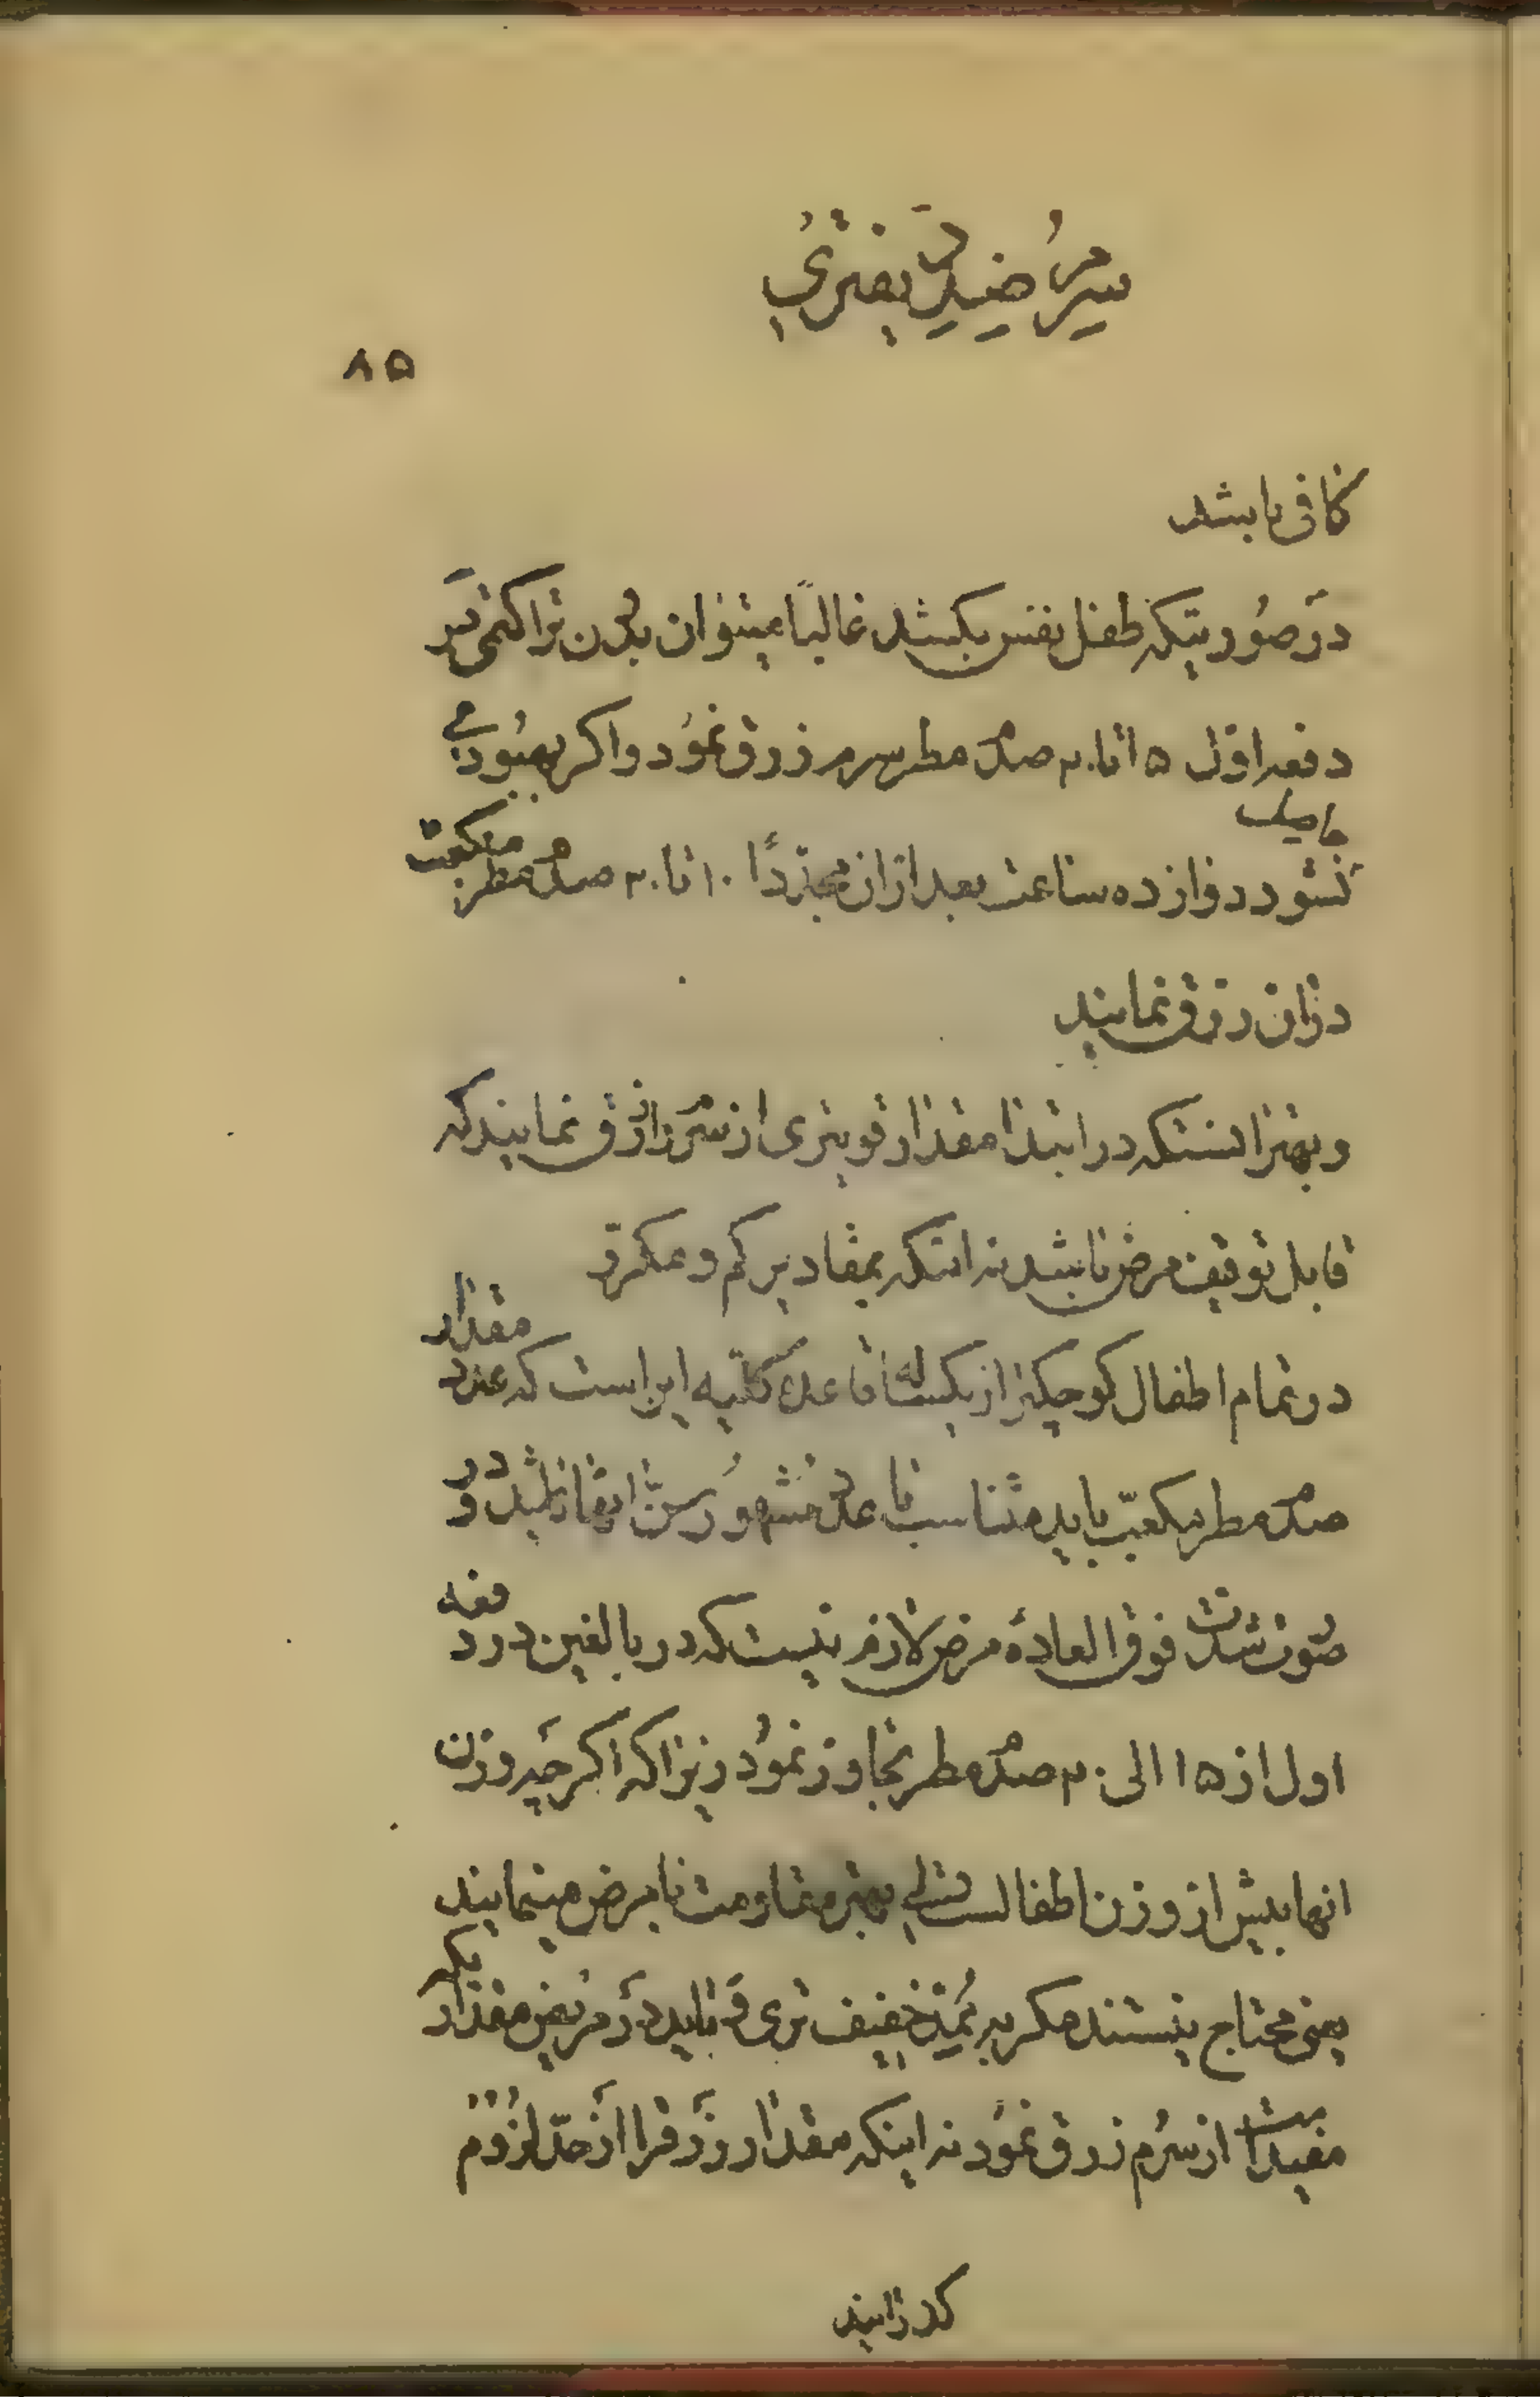 سرم ضد دیفتری
۸۵
کافی باشد
در صورتیکه طفل نفس بکشد غالباً میتوان بدون تراکتمی در
دفعه اول ۱۵ تا ۲۰ صدم مطر سرم زرق نمود و اگر بهبودی
حاصل
نشود دوازده ساعت بعد از آن مجدداً ۱۰ تا ۲۰ صدم مطر مکعب
در آن زرق نمایند
و بهتر انستکه در ابتدا مقدار قویتری از سرم را زرق نمایند که
قابل توقیف مرض باشد نه اینکه بمقادیر کم و مکرر
در تمام اطفال کوچکتر از یکساله قاعده کلیه این است که عدد مقدار
صدم مطر مکعب باید متناسب با عدد مشهور سن انها باشد و در
صورت شدت فوق العاده مرض لازم نیست که در بالغین در دفعه
اول از ۱۵ الی ۲۰ صدم مطر تجاوز نمود زیرا که اگر چه وزن
انها بیش از وزن اطفالست ولی بهتر مقاومت با مرض مینمایند
یعنی محتاج نیستند مگر به خفیف تری و باید در مریض مقداریکه
مفید است از سرم زرق نمود نه اینکه مقدار زرق را از حد لزوم
گذرانید